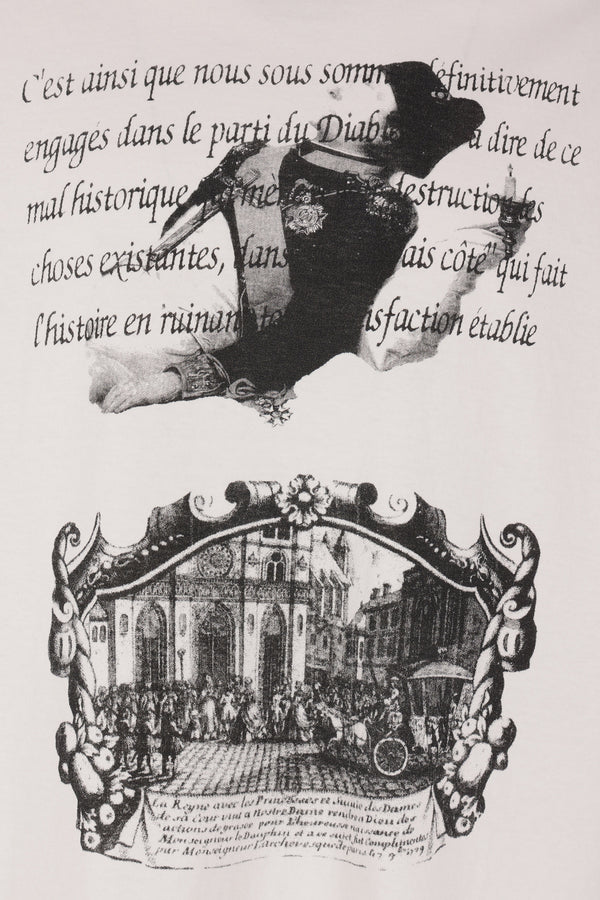 C'est ainsi que nous sous somm définitivement
engagés dans le parti du Diable à dire de ce
mal historique qui mène destruction les
choses existantes, dans ais côté" qui fait
l'histoire en ruinant isfaction établie
La Reyne avec les Princesses et Suitte des Dames
de sa Cour vint a Nostre Dame rendre a Dieu des
actions de grace pour l'heureuse naissance de
Monseigneur le Dauphin et a ce sujet fut Complimentée
par Monseigneur l'archevesque de paris le 7